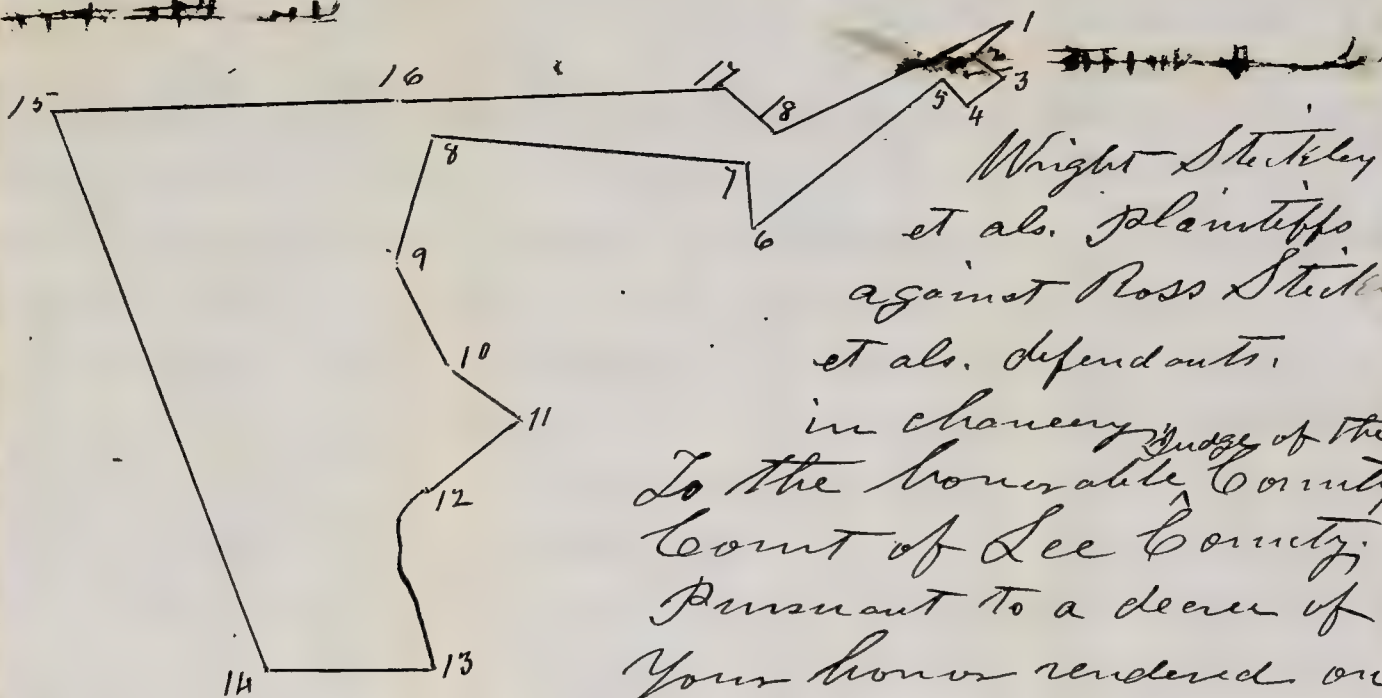 1
2
3
4
5
6
7
8
9
10
11
12
13
14
15
16
17
18
Wright Stickley
et als. plaintiffs
against Ross Stick
et als. defendants.
in chancery
Judge of the
To the honorable ^ County
Court of Lee County;
Pursuant to a decree of
Your honor rendered on